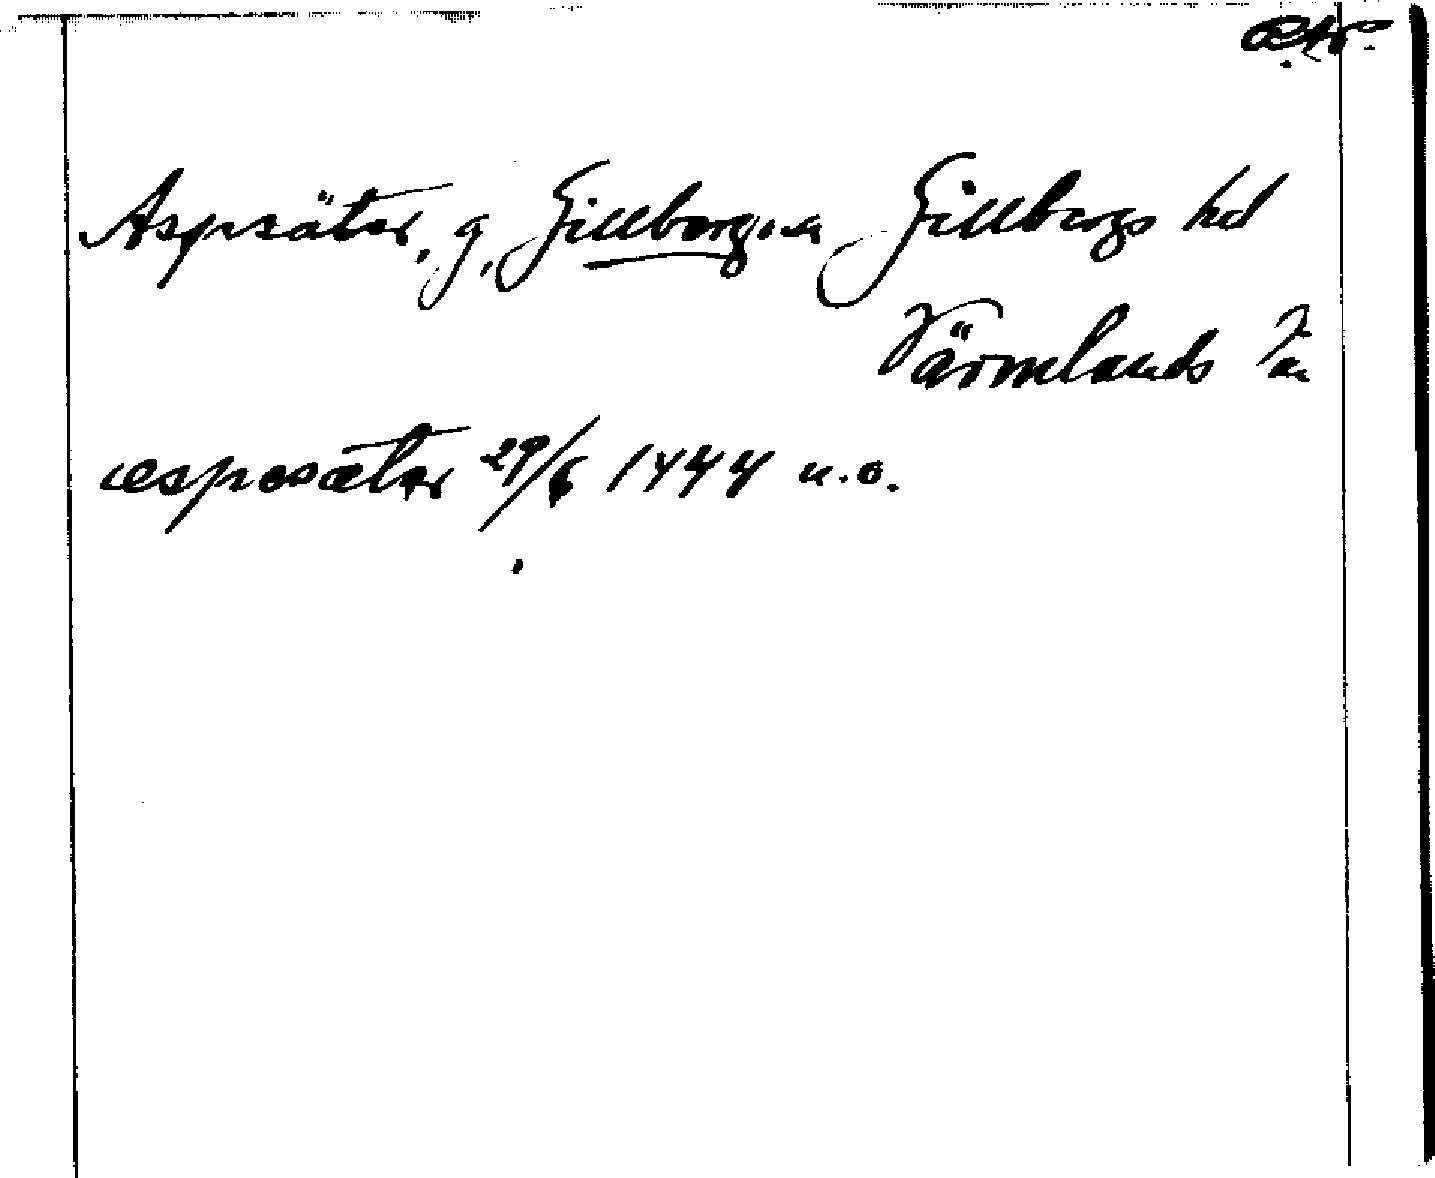 Aspsäter, g, Gillberga sn Gillbergs hd
Värmlands län
æspesæter 29/6 1444 u.o.